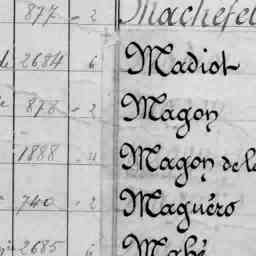 877 2 Machefel
2684 6 Madiot
878 2 Magon
1888 4 Magon de la
740 2 Maguéro
2685 6 Mahé